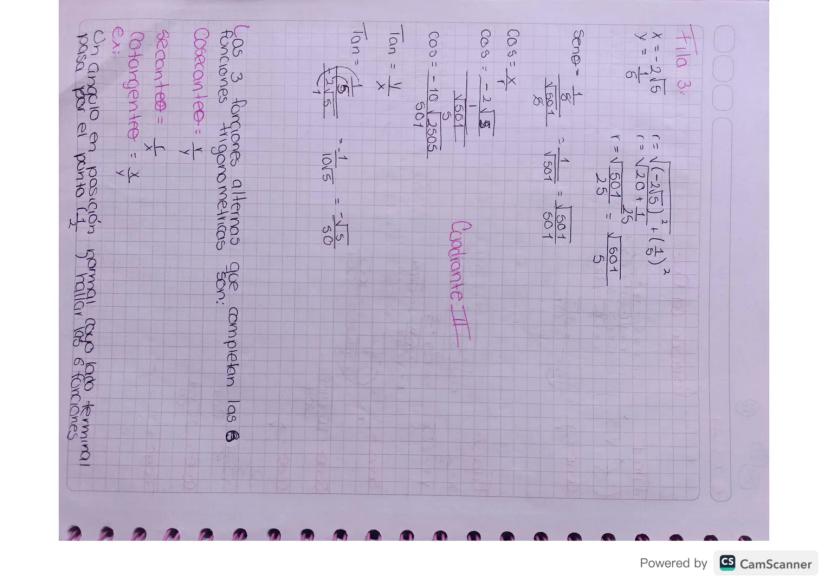 Fila 3.
x = -2√5
y = 1/5
r = √((-2√5)² + (1/5)²)
r = √(20 + 1/25)
r = √(501/25) = √501/5
senθ = (1/5)/(√501/5) = 1/√501 = √501/501
Cos = x/r
Cos = (-2√5/1)/(√501/5)
Cos = -10√2505/501
Cuadrante II
Tan = y/x
Tan = (1/5)/(-2√5/1) = -1/10√5 = -√5/50
Las 3 funciones alternas que completan las 6
funciones trigonometricas son:
Cosecanteθ = r/y
Secanteθ = r/x
Cotangenteθ = x/y
ex:
Un angulo en posición normal cuyo lado terminal
pasa por el punto (1/2 ) hallar las 6 funciones
Powered by CS CamScanner